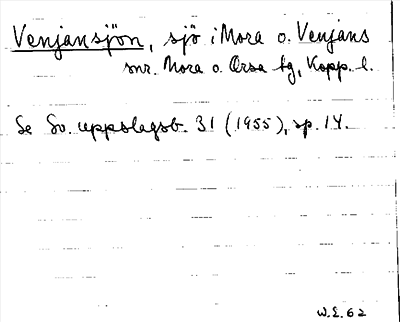 Venjansjön, sjö i Mora o. Venjans
snr. Mora o. Orsa tg, Kopp. l.
Se Sv. uppslagsb. 31 (1955), sp. 14.
W.E. 62